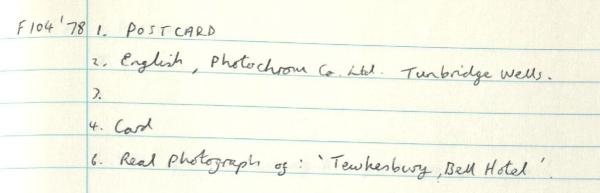 F104'78 1. POSTCARD
2. English, Photochrom Co. Ltd. Tunbridge Wells.
3.
4. Card
6. Real Photograph of: 'Tewkesbury, Bell Hotel'.